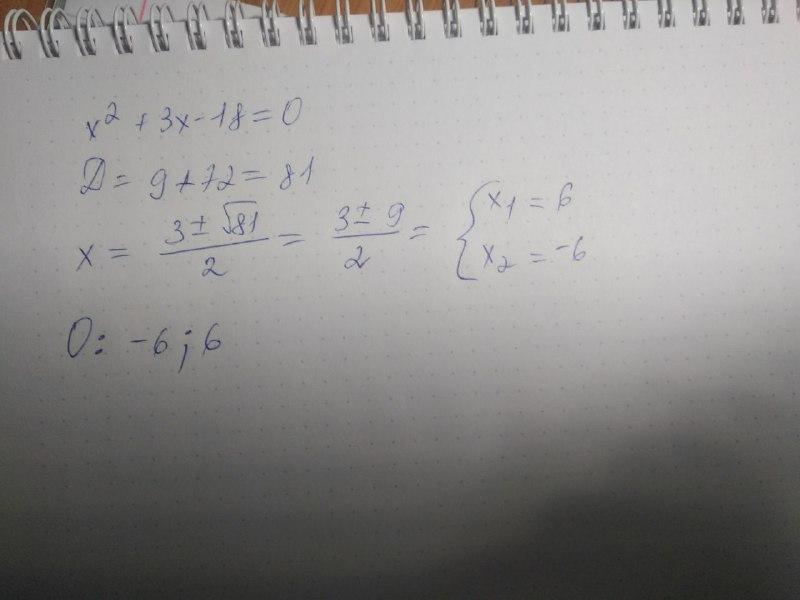 x² + 3x - 18 = 0
D = 9 + 72 = 81
x = (3 ± √81)/2 = (3 ± 9)/2 = { x₁ = 6
x₂ = -6
О: -6; 6